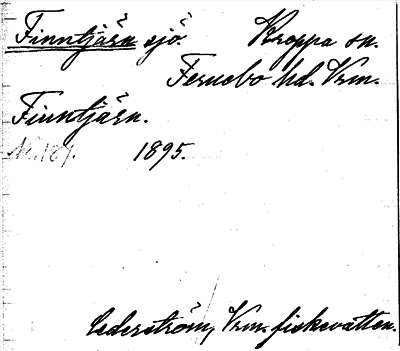 Finntjärn sjö. Kroppa sn.
Fernebo hd. Vrm.
Finntjärn.
NE.189. 1895.
Cederström, Vrm. fiskevatten.